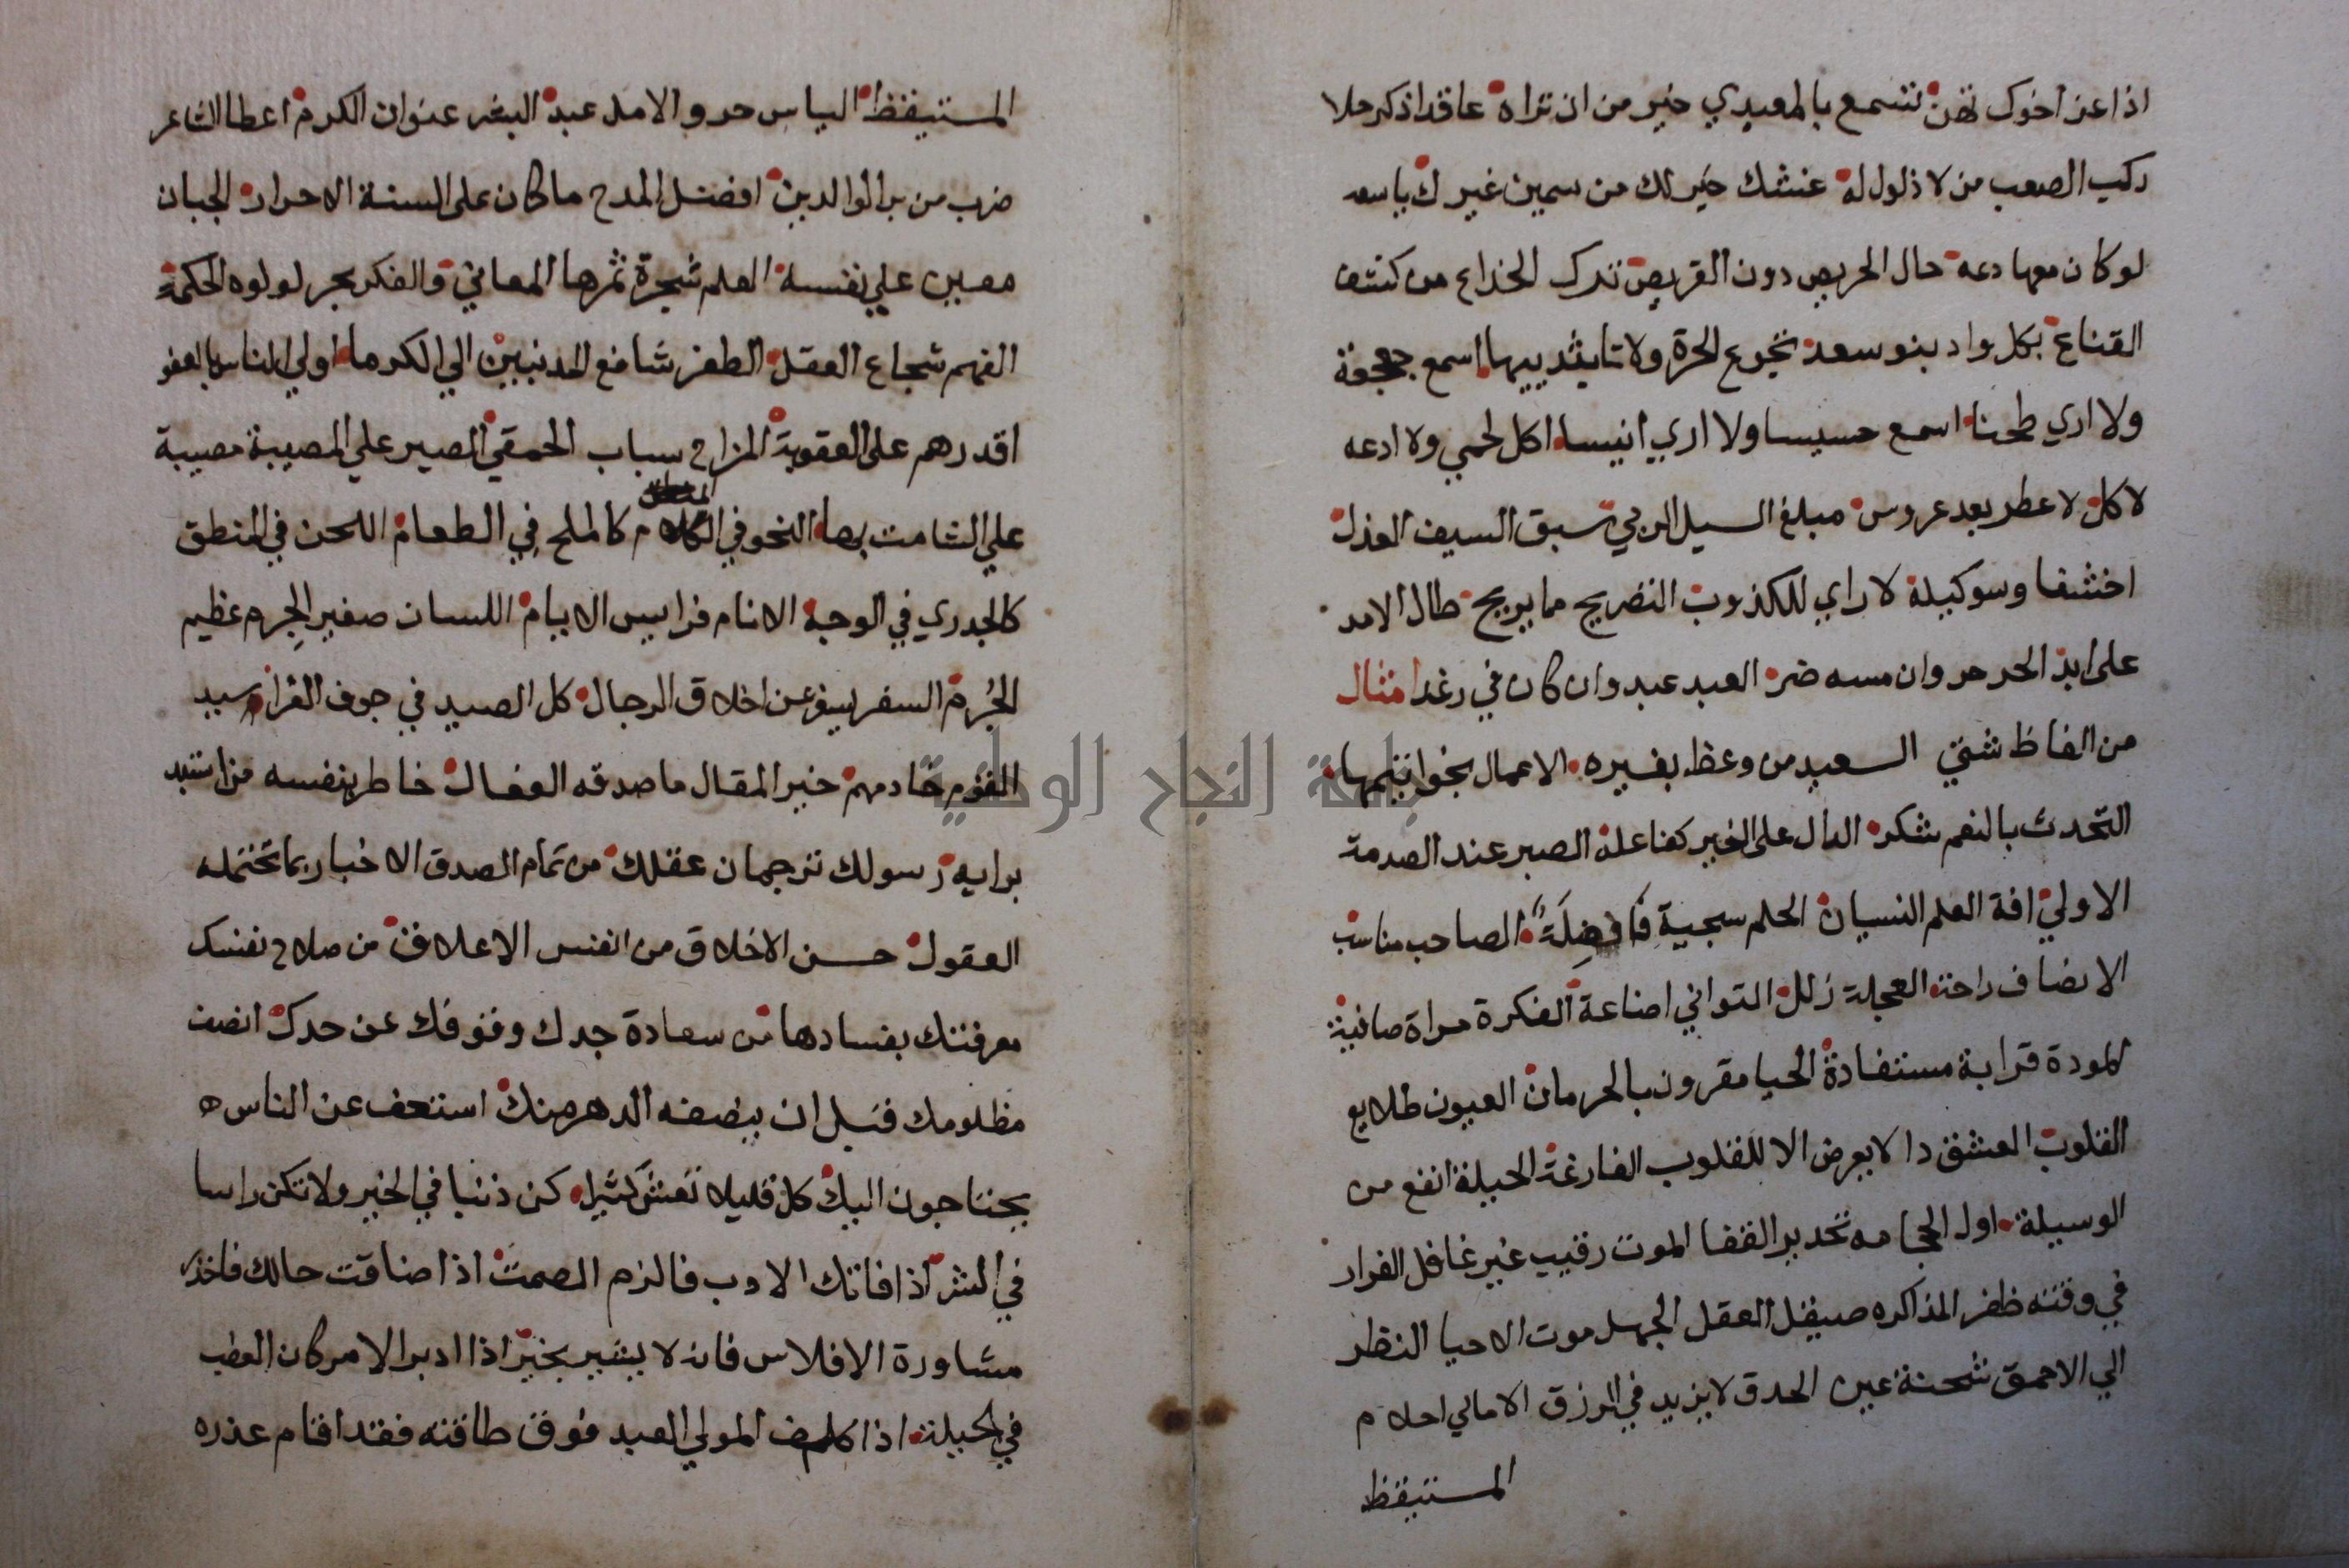 اذا عز اخوك فهن تسمع بالمعيدي خير من ان تراه عاقد اذكر حلا
ركب الصعب من لا ذلول له غشك خير لك من سمين غيرك يا سعد
لو كان معها دعه حال الحريص دون القريص تدرك الخداع من كشف
القناع بكل واد بنو سعد تجوع الحرة ولا تاكل بثدييها اسمع جعجعة
ولا اري طحنا اسمع حسيسا ولا اري انيسا اكل لحمي ولا ادعه
لاكل لا عطر بعد عروس مبلغ السيل الربي سبق السيف العذل
احشفا وسو كيلة لا راي للكذوب التصريح مما يريح طال الامد
على ابد الحر حر وان مسه ضر العبد عبد وان كان في رغد امثال
من الفاظ شتي السعيد من وعظ بغيره الاعمال بخواتيمها
التحدث بالنعم شكر الدال على الخير كفاعله الصبر عند الصدمة
الاولي افة العلم النسيان الحلم سجية فاضلة الصاحب مناسب
الانصاف راحة العجلة زلل التواني اضاعة الفكرة مراة صافية
المودة قرابة مستفادة الحيا مقرون بالحرمان العيون طلايع
القلوب العشق دا لا يعرض الا للقلوب الفارغة الحيلة انفع من
الوسيلة اول الحجامه تحدير القفا الموت رقيب غير غافل الفرار
في وقته ظفر المذاكره صيقل العقل الجهل موت الاحيا النظر
الي الاحمق شحنة عين الحدق لا يزيد في الرزق الاماني احلام
المستيقظ
المستيقظ الياس حر والامل عبد البشر عنوان الكرم اعطا الشاعر
ضرب من بر الوالدين افضل المدح ما كان على السنة الاحرار الجبان
معين علي نفسه العلم شجرة ثمرها المعاني والفكر بحر لولوه الحكمة
الفهم شعاع العقل الظفر شافع المذنبين الي الكرما اولي الناس بالعفو
اقدرهم على العقوبة المزاح سباب الحمقي الصبر علي المصيبة مصيبة
علي الشامت بها النحو في الكلام كالملح في الطعام اللحن في المنطق
كالجدري في الوجه الانام فرايس الايام اللسان صغير الجِرم عظيم
الجُرم السفر يسفر عن اخلاق الرجال كل الصيد في جوف الفرا سيد
القوم خادمهم خير المقال ما صدقه الفعال خاطر بنفسه من استبد
برايه رسولك ترجمان عقلك من تمام الصدق الاخبار بما تحتمله
العقول حسن الاخلاق من انفس الاعلاق من صلاح نفسك
معرفتك بفسادها من سعادة جدك وقوفك عن حدك انصف
مظلومك قبل ان ينصفه الدهر منك استعف عن الناس
يحتاجون اليك كل قليلا تعش كثيرا كن ذنبا في الخير ولا تكن راسا
في الشر اذا فاتك الادب فالزم الصمت اذا ضاقت حالك فاحذر
مشاورة الافلاس فانه لا يشير بخير اذا ادبر الامر كان العطب
في الحيلة اذا كلف المولي العبد فوق طاقته فقد اقام عذره
جامعة النجاح الوطنية